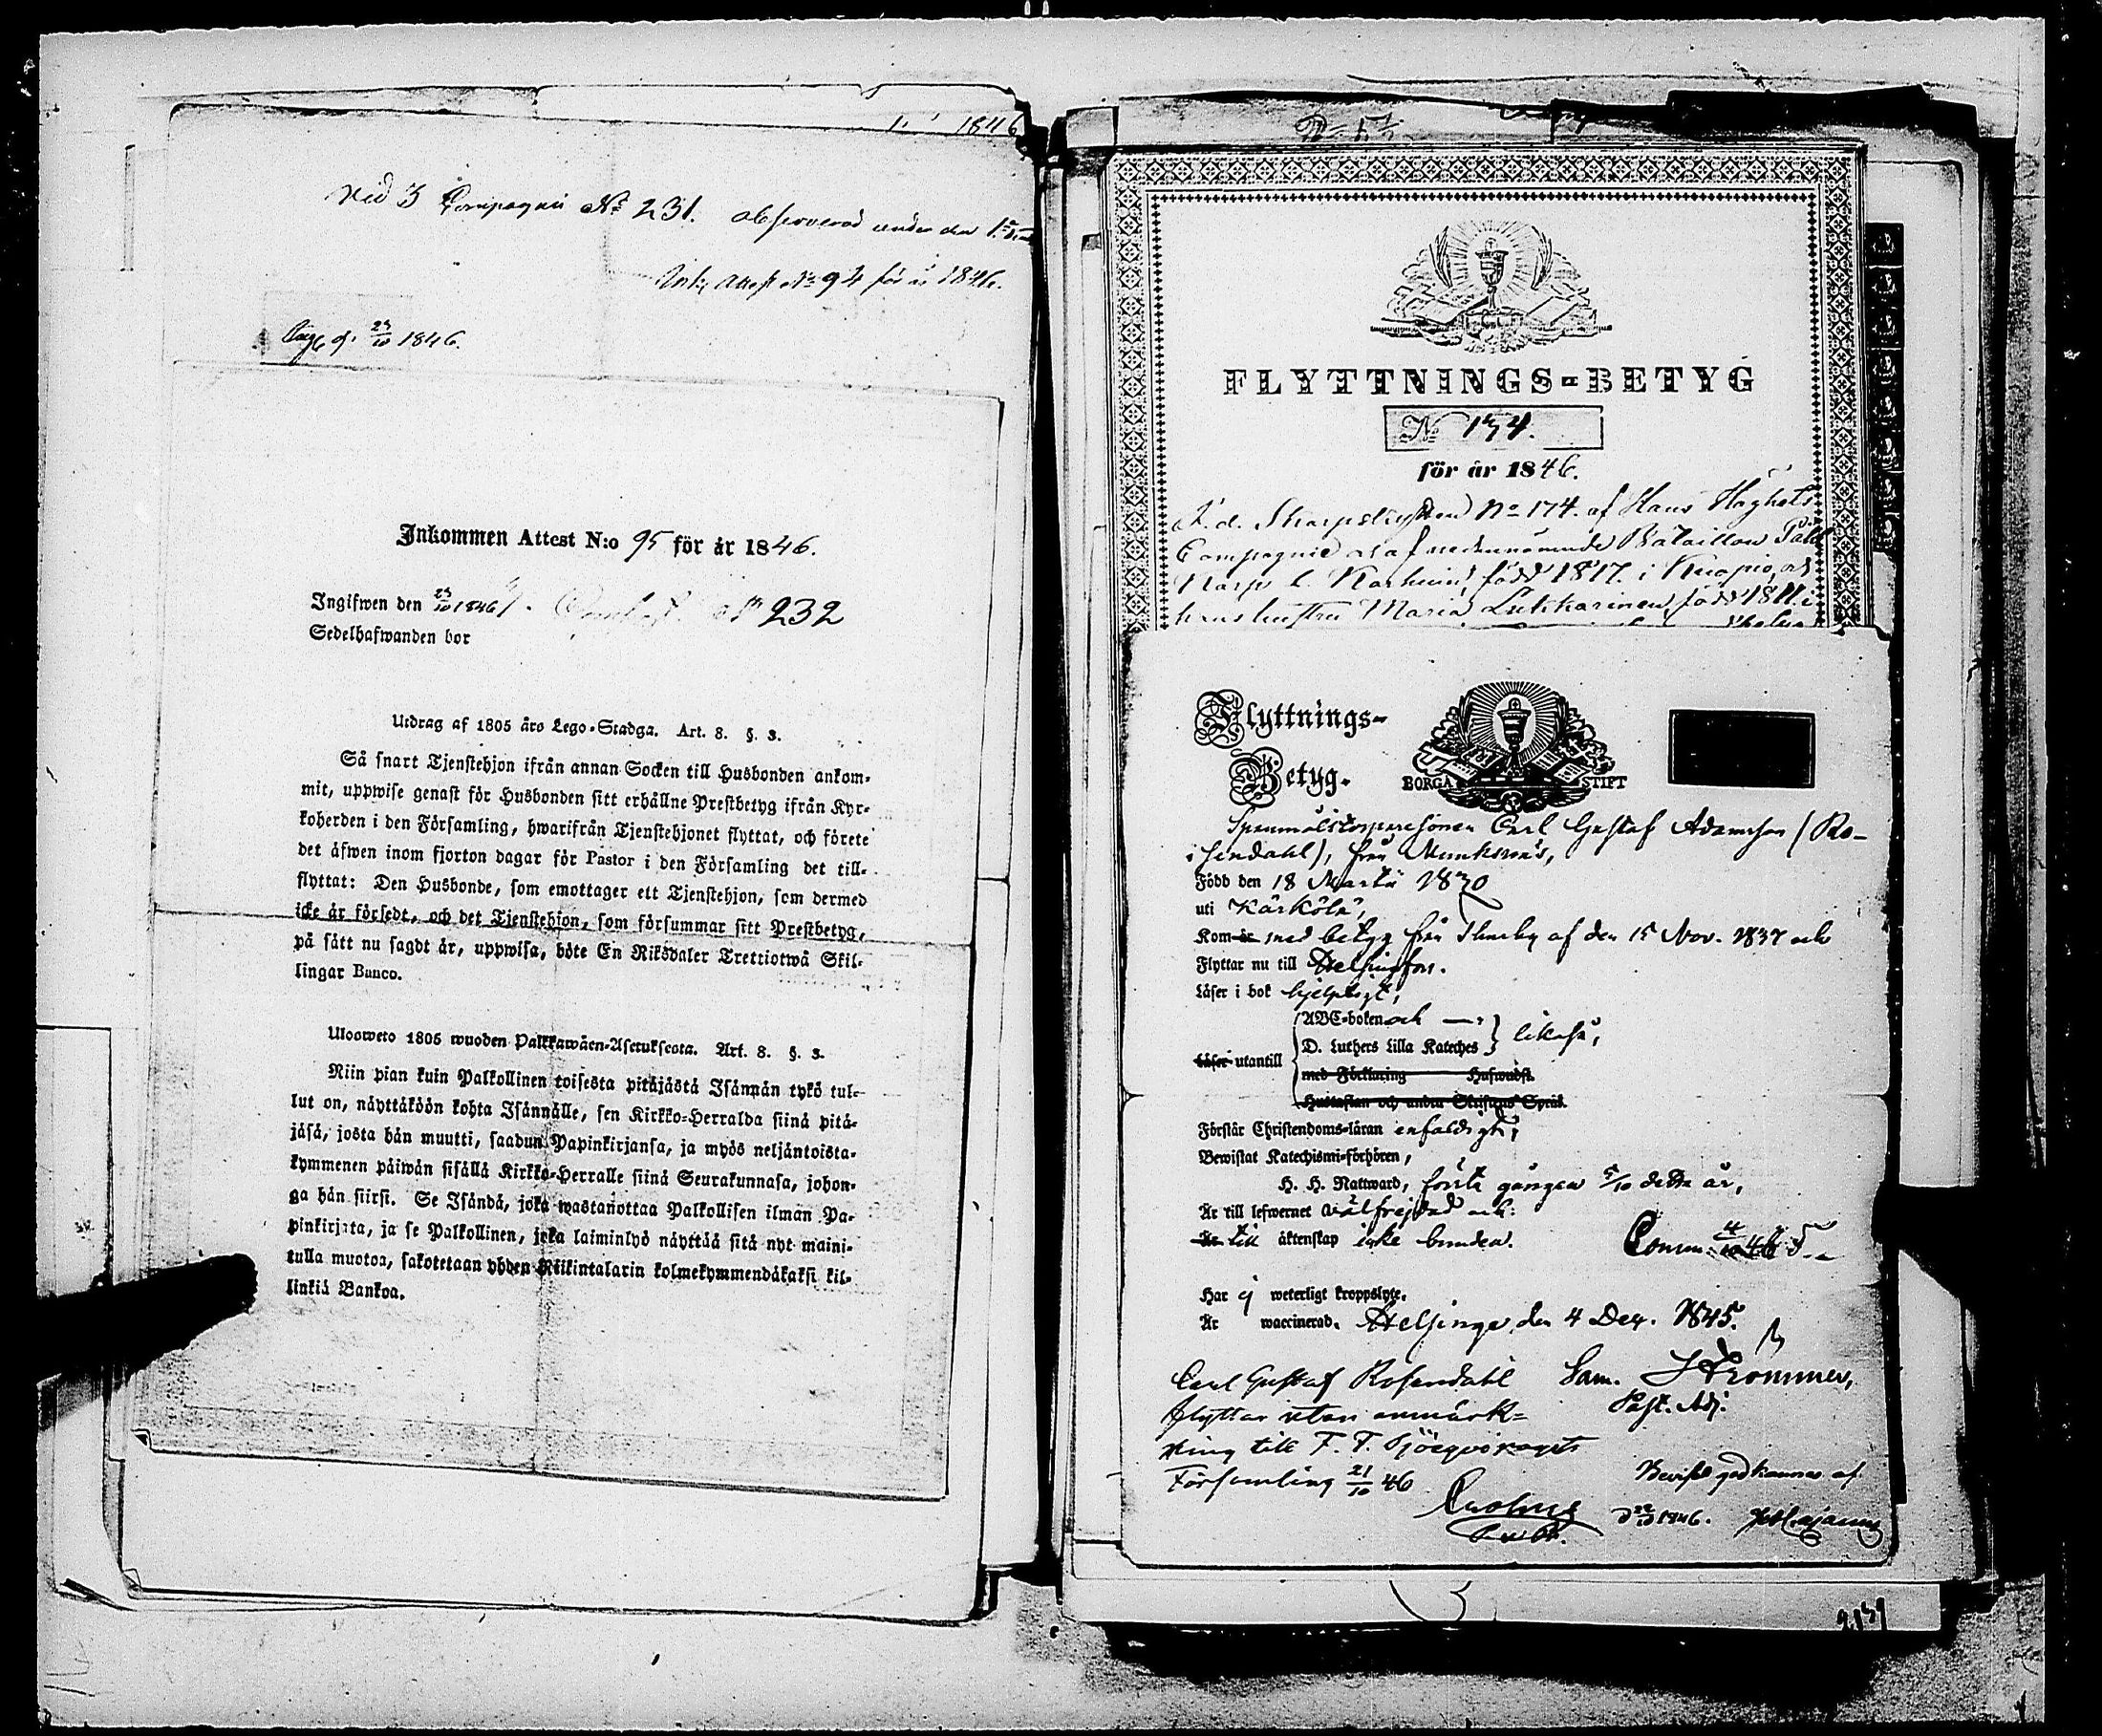 1846
Vid 3 Compagni No 231. observerad under den
Ink. Attest No 94 för år 1846.
d. 23/10 1846.
Inkommen Attest N:o 95 för år 1846.
Ingifwen den 23/10 1846. No 232
Sedelhafwanden bor
Utdrag af 1805 års Lego-Stadga. Art. 8. §. 3.
Så snart Tjenstehjon ifrån annan Socken till Husbonden ankom-
mit, uppwise genast för Husbonden sitt erhållne Prestbetyg ifrån Kyr-
koherden i den Församling, hwarifrån Tjenstehjonet flyttat, och förete
det äfwen inom fjorton dagar för Pastor i den Församling det till-
flyttat: Den Husbonde, som emottager ett Tjenstehjon, som dermed
icke är försedt, och det Tjenstehjon, som försummar sitt Prestbetyg,
på sätt nu sagdt är, uppwisa, böte En Riksdaler Trettiotwå Skil-
lingar Banco.
Ulosweto 1805 wuoden Palkkawäen-Asetuksesta. Art. 8. §. 3.
Niin pian kuin Palkollinen toisesta pitäjästä Isännän tykö tul-
lut on, näyttäköön kohta Isännälle, sen Kirkko-Herralda siinä pitä-
jäsä, josta hän muutti, saadun Papinkirjansa, ja myös neljäntoista-
kymmenen päiwän sisällä Kirkko-Herralle siinä Seurakunnasa, johon-
ga hän siirsi. Se Isändä, joka wastanottaa Palkollisen ilman Pa-
pinkirjata, ja se Palkollinen, joka laiminlyö näyttää sitä nyt maini-
tulla muotoa, sakotetaan yhden Riikintalarin kolmekymmendäkaksi kil-
linkiä Bankoa.
FLYTTNINGS-BETYG
No 174.
för år 1846.
F.d. Skarpskytten No 174. af Hans Höghets
Compagnie af nedannämnde Bataillon Påhl
Karp l. Karhuin, född 1817. i Kuopio, och
hans hustru Maria Lukkarinen, född 1811. i
Flyttnings-
Betyg.
BORGÅ STIFT
Spanmålstorparesonen Carl Gustaf Adamsson (Ro-
sendahl), från Munksnäs,
Född den 18 Martii 1830
uti Kärkölä,
Kom är med betyg från Thusby af den 15 Nov. 1837 och
Flyttar nu till Helsingfors.
Läser i bok hjelpligt,
ABC-boken och
D. Luthers Lilla Kateches likaså,
Läser utantill
med Förklaring Hufwudst.
Hustaflan och andra Skriftens Språk
Förstår Christendoms-läran enfaldigt,
Bewistat Katechismi-förhören,
H. H. Nattward, första gången 5/10 detta år,
Är till lefwernet välfrejdad och
Är till äktenskap icke bunden.
Comm.
Har ej weterligt kroppslyte.
Är waccinerad. Helsinge, den 4 Dec. 1845.
Carl Gustaf Rosendahl
Sam. Strömmer,
Past. Adj.
flyttar utan anmärk-
ning till F. F. Sjöequipagets
Församling 21/10 46
Beviset godkännes af
d 22/10 1846.